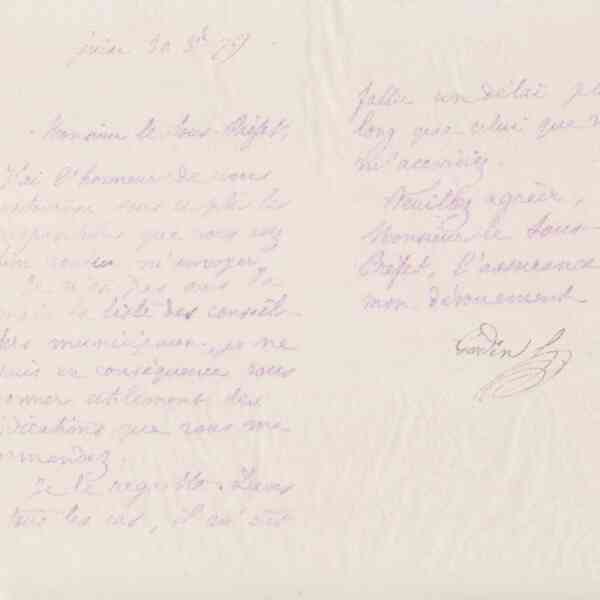 30
Monsieur le Sous-Préfet,
J'ai l'honneur de vous
sous ce pli les
que vous avez
bien voulu m'envoyer.
Je n'ai pas sous la
main la liste des conseil-
lers municipaux, je ne
puis en conséquence vous
donner utilement des
indications que vous me
demandez.
Je le regrette. Dans
tous les cas, il m'eût
fallu un délai plus
long que celui que
m'accordiez.
Veuillez agréer,
Monsieur le Sous-
Préfet, l'assurance
mon dévouement
Godin